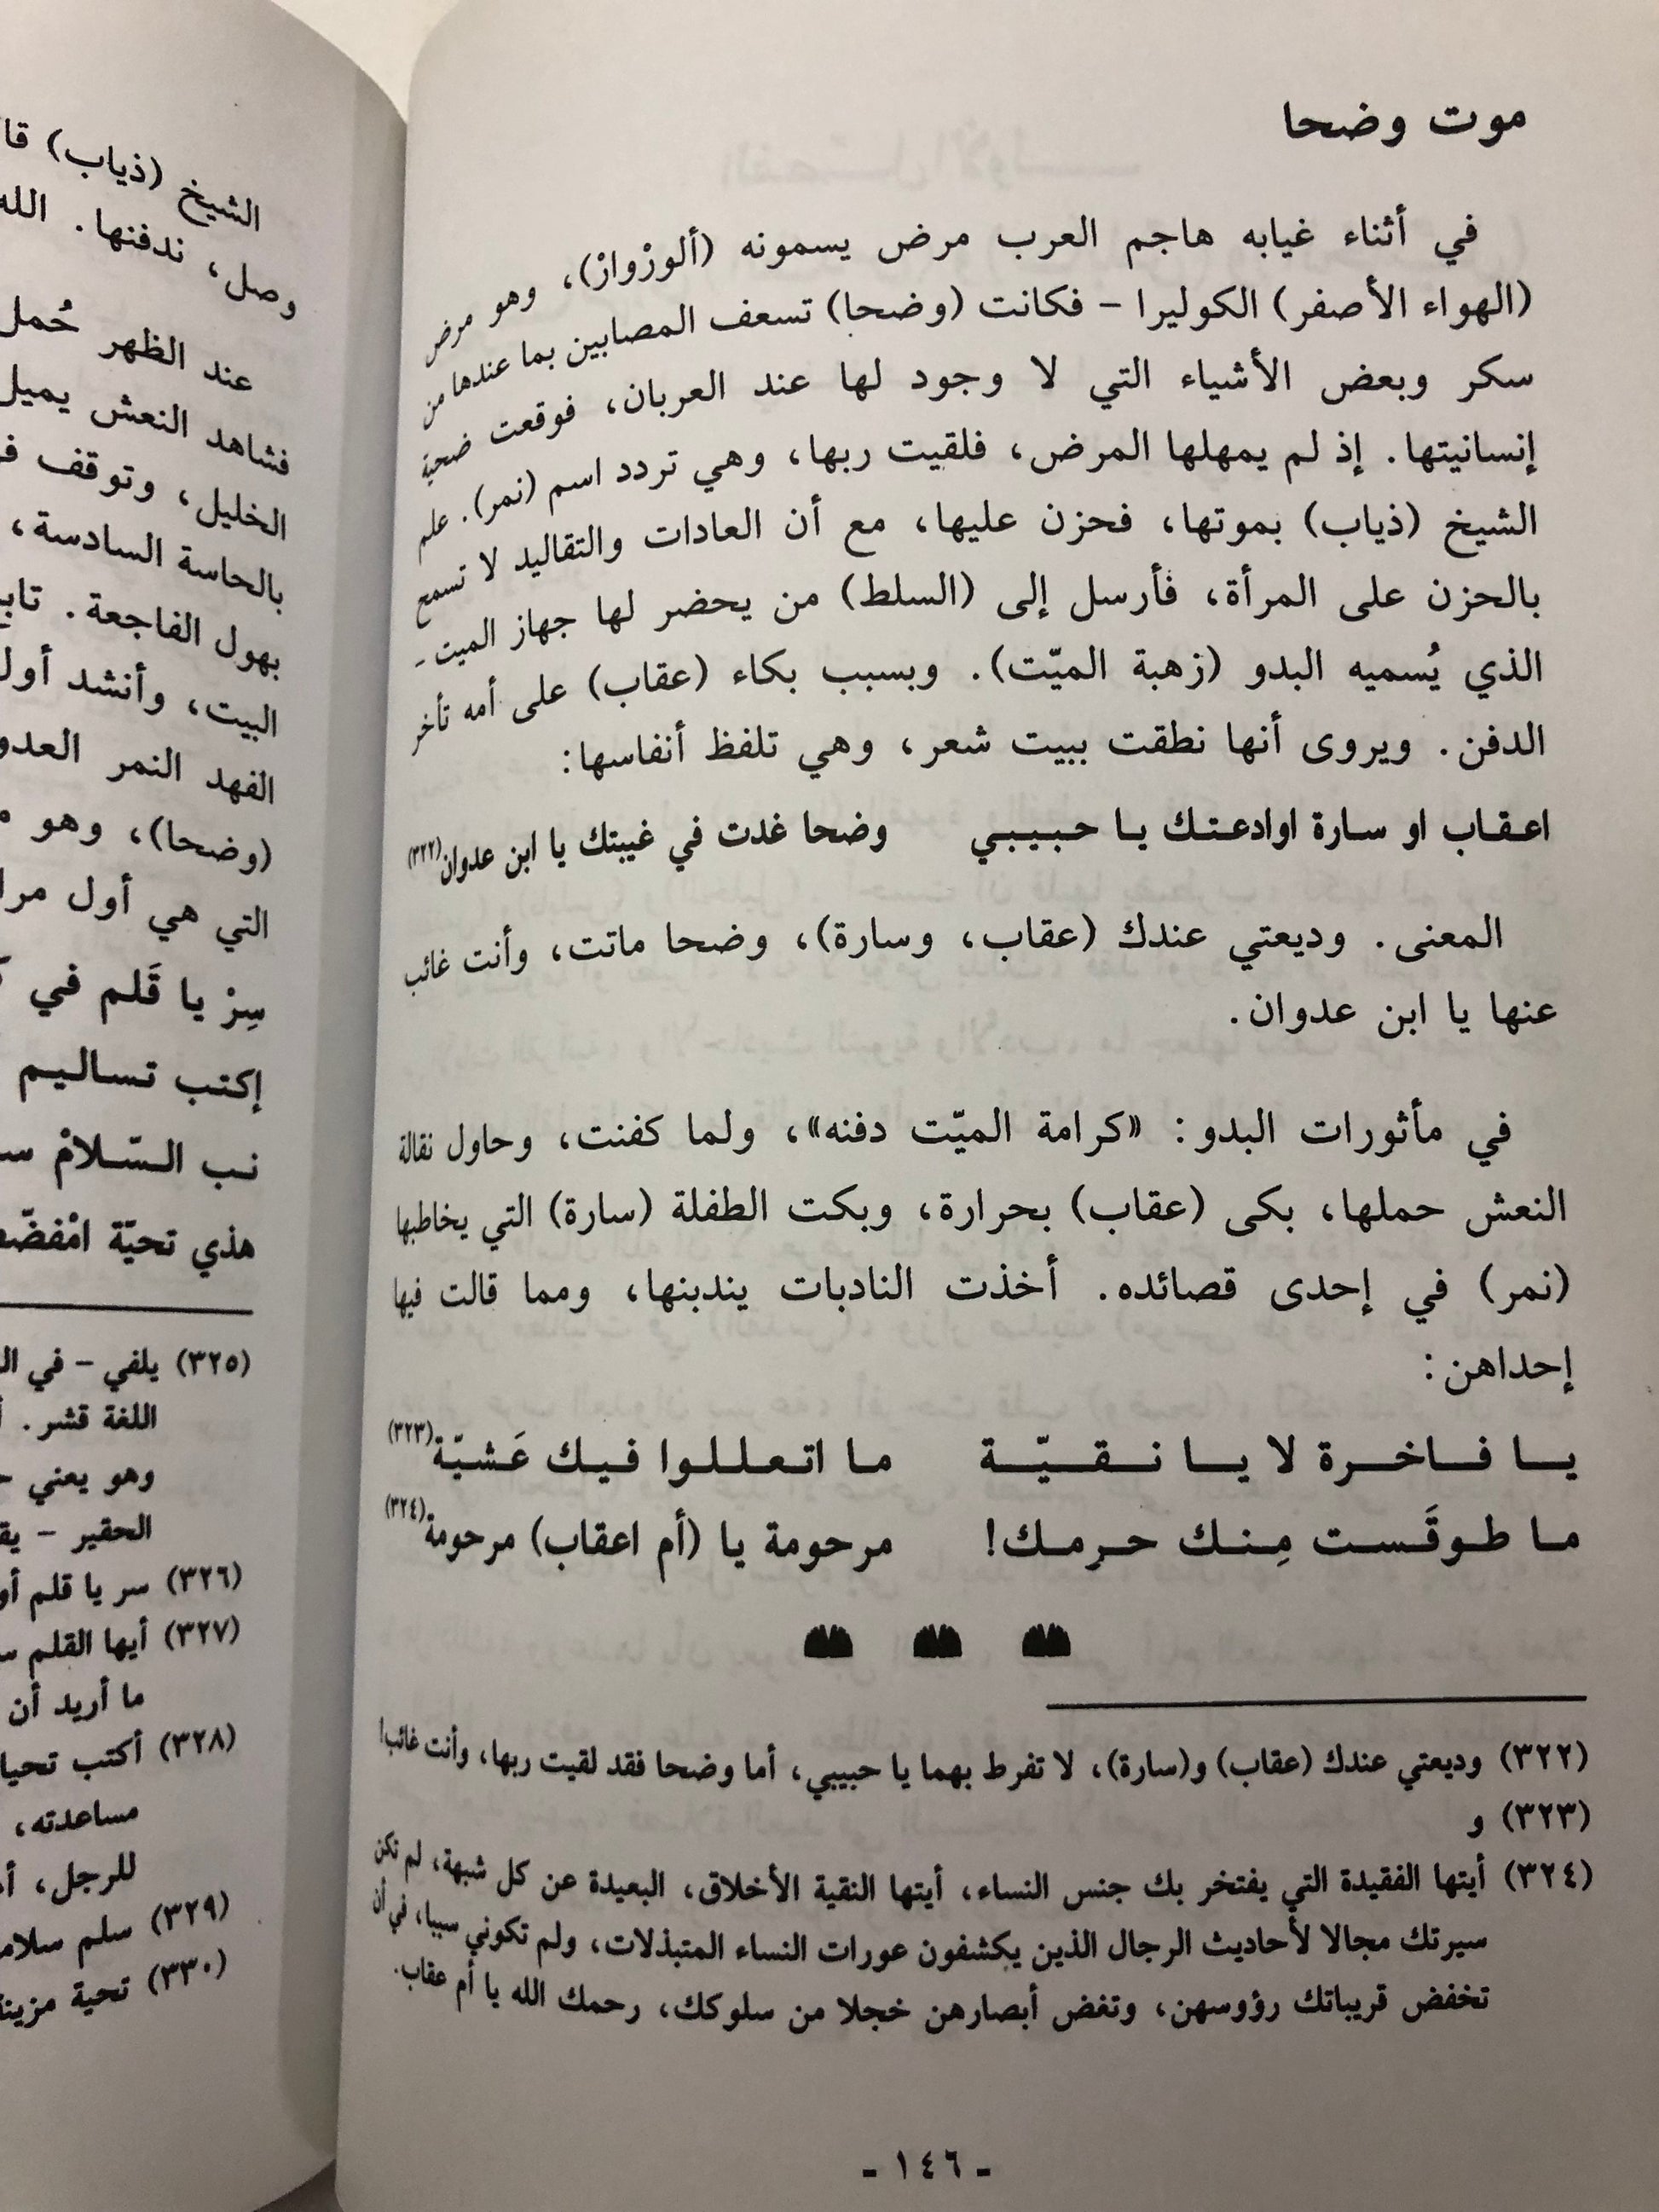 موت وضحا
في أثناء غيابه هاجم العرب مرض يسمونه (ألوزْوازْ)، وهو مرض
(الهواء الأصفر) الكوليرا – فكانت (وضحا) تسعف المصابين بما عندها من
سكر وبعض الأشياء التي لا وجود لها عند العربان، فوقعت ضحية
إنسانيتها. إذ لم يمهلها المرض، فلقيت ربها، وهي تردد اسم (نمر). علم
الشيخ (ذياب) بموتها، فحزن عليها، مع أن العادات والتقاليد لا تسمح
بالحزن على المرأة، فأرسل إلى (السلط) من يحضر لها جهاز الميت -
الذي يُسميه البدو (زهبة الميّت). وبسبب بكاء (عقاب) على أمه تأخر
الدفن. ويروى أنها نطقت ببيت شعر، وهي تلفظ أنفاسها:
اعقاب او سارة اوادعتك يا حبيبي وضحا غدت في غيبتك يا ابن عدوان(٣٢٢)
المعنى. وديعتي عندك (عقاب، وسارة)، وضحا ماتت، وأنت غائب
عنها يا ابن عدوان.
في مأثورات البدو: «كرامة الميّت دفنه»، ولما كفنت، وحاول نقالة
النعش حملها، بكى (عقاب) بحرارة، وبكت الطفلة (سارة) التي يخاطبها
(نمر) في إحدى قصائده. أخذت النادبات يندبنها، ومما قالت فيها
إحداهن:
يا فاخرة لا يا نقيّة ما اتعللوا فيك عَشيّة(٣٢٣)
ما طوقَست مِنك حرمك! مرحومة يا (أم اعقاب) مرحومة(٣٢٤)
(٣٢٢) وديعتي عندك (عقاب) و(سارة)، لا تفرط بهما يا حبيبي، أما وضحا فقد لقيت ربها، وأنت غائب!
(٣٢٣) و
(٣٢٤) أيتها الفقيدة التي يفتخر بك جنس النساء، أيتها النقية الأخلاق، البعيدة عن كل شبهة، لم تكن
سيرتك مجالا لأحاديث الرجال الذين يكشفون عورات النساء المتبذلات، ولم تكوني سببا، في أن
تخفض قريباتك رؤوسهن، وتغض أبصارهن خجلا من سلوكك، رحمك الله يا أم عقاب.
- ١٤٦ -
الشيخ (ذياب)
وصل، ندفنها. الله
عند الظهر حُمل
فشاهد النعش يميل
الخليل، وتوقف
بالحاسة السادسة،
بهول الفاجعة.
البيت، وأنشد أول
الفهد النمر
(وضحا)، وهو
التي هي أول
سِرْ يا قَلم في
إكتب تساليم
نب السّلامْ
هذي تحيّة
(٣٢٥) يلفي – في
اللغة قشر.
وهو يعني
الحقير –
(٣٢٦) سر يا قلم
(٣٢٧) أيها القلم
ما أريد أن
(٣٢٨) أكتب
مساعدته،
للرجل،
(٣٢٩) سلم
(٣٣٠) تحية